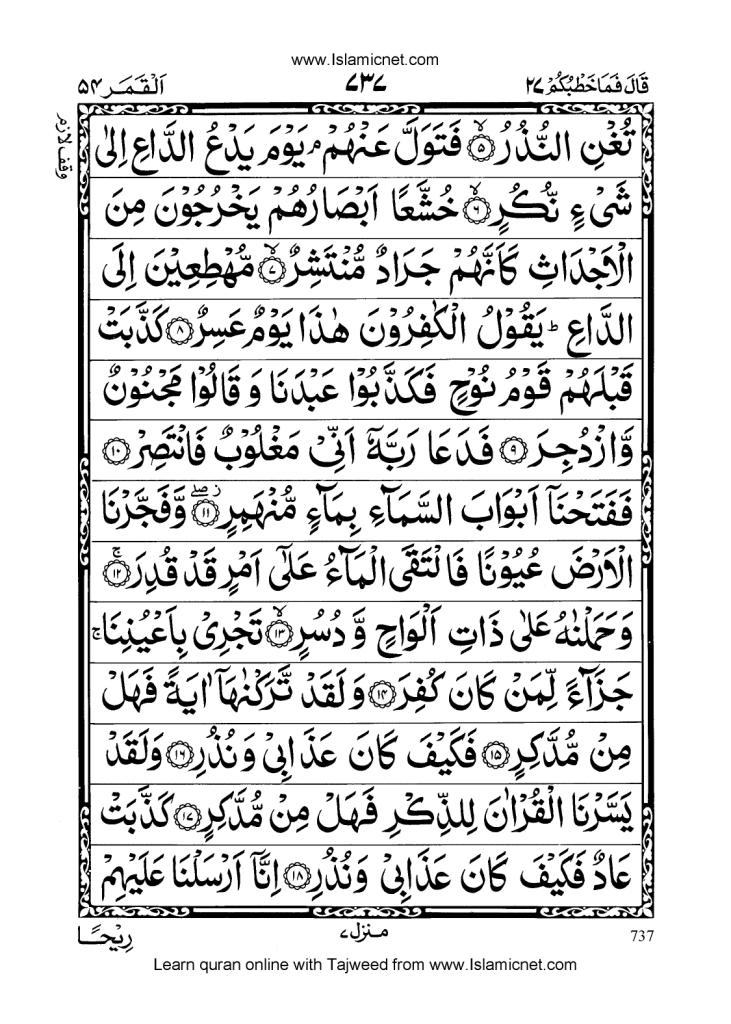 www.Islamicnet.com
قَالَ فَمَا خَطْبُكُمْ ٢٧
٧٣٧
اَلْقَمَر ٥٤
وقف لازم
تُغْنِ النُّذُرُ ۙ﴿٥﴾ فَتَوَلَّ عَنْهُمْ ۘ يَوْمَ يَدْعُ الدَّاعِ اِلٰى
شَيْءٍ نُّكُرٍ ۙ﴿٦﴾ خُشَّعًا اَبْصَارُهُمْ يَخْرُجُوْنَ مِنَ
الْاَجْدَاثِ كَاَنَّهُمْ جَرَادٌ مُّنْتَشِرٌ ۙ﴿٧﴾ مُّهْطِعِيْنَ اِلَى
الدَّاعِ ؕ يَقُوْلُ الْكٰفِرُوْنَ هٰذَا يَوْمٌ عَسِرٌ ﴿٨﴾ كَذَّبَتْ
قَبْلَهُمْ قَوْمُ نُوْحٍ فَكَذَّبُوْا عَبْدَنَا وَ قَالُوْا مَجْنُوْنٌ
وَّازْدُجِرَ ﴿٩﴾ فَدَعَا رَبَّهٗۤ اَنِّيْ مَغْلُوْبٌ فَانْتَصِرْ ﴿١٠﴾
فَفَتَحْنَاۤ اَبْوَابَ السَّمَآءِ بِمَآءٍ مُّنْهَمِرٍ ۖز﴿١١﴾ وَّفَجَّرْنَا
الْاَرْضَ عُيُوْنًا فَالْتَقَى الْمَآءُ عَلٰۤى اَمْرٍ قَدْ قُدِرَ ۚ﴿١٢﴾
وَحَمَلْنٰهُ عَلٰى ذَاتِ اَلْوَاحٍ وَّ دُسُرٍ ۙ﴿١٣﴾ تَجْرِيْ بِاَعْيُنِنَا ۚ
جَزَآءً لِّمَنْ كَانَ كُفِرَ ﴿١٤﴾ وَلَقَدْ تَّرَكْنٰهَاۤ اٰيَةً فَهَلْ
مِنْ مُّدَّكِرٍ ﴿١٥﴾ فَكَيْفَ كَانَ عَذَابِيْ وَنُذُرِ ﴿١٦﴾ وَلَقَدْ
يَسَّرْنَا الْقُرْاٰنَ لِلذِّكْرِ فَهَلْ مِنْ مُّدَّكِرٍ ﴿١٧﴾ كَذَّبَتْ
عَادٌ فَكَيْفَ كَانَ عَذَابِيْ وَنُذُرِ ﴿١٨﴾ اِنَّاۤ اَرْسَلْنَا عَلَيْهِمْ
رِيْحًا
منزل ٧
737
Learn quran online with Tajweed from www.Islamicnet.com